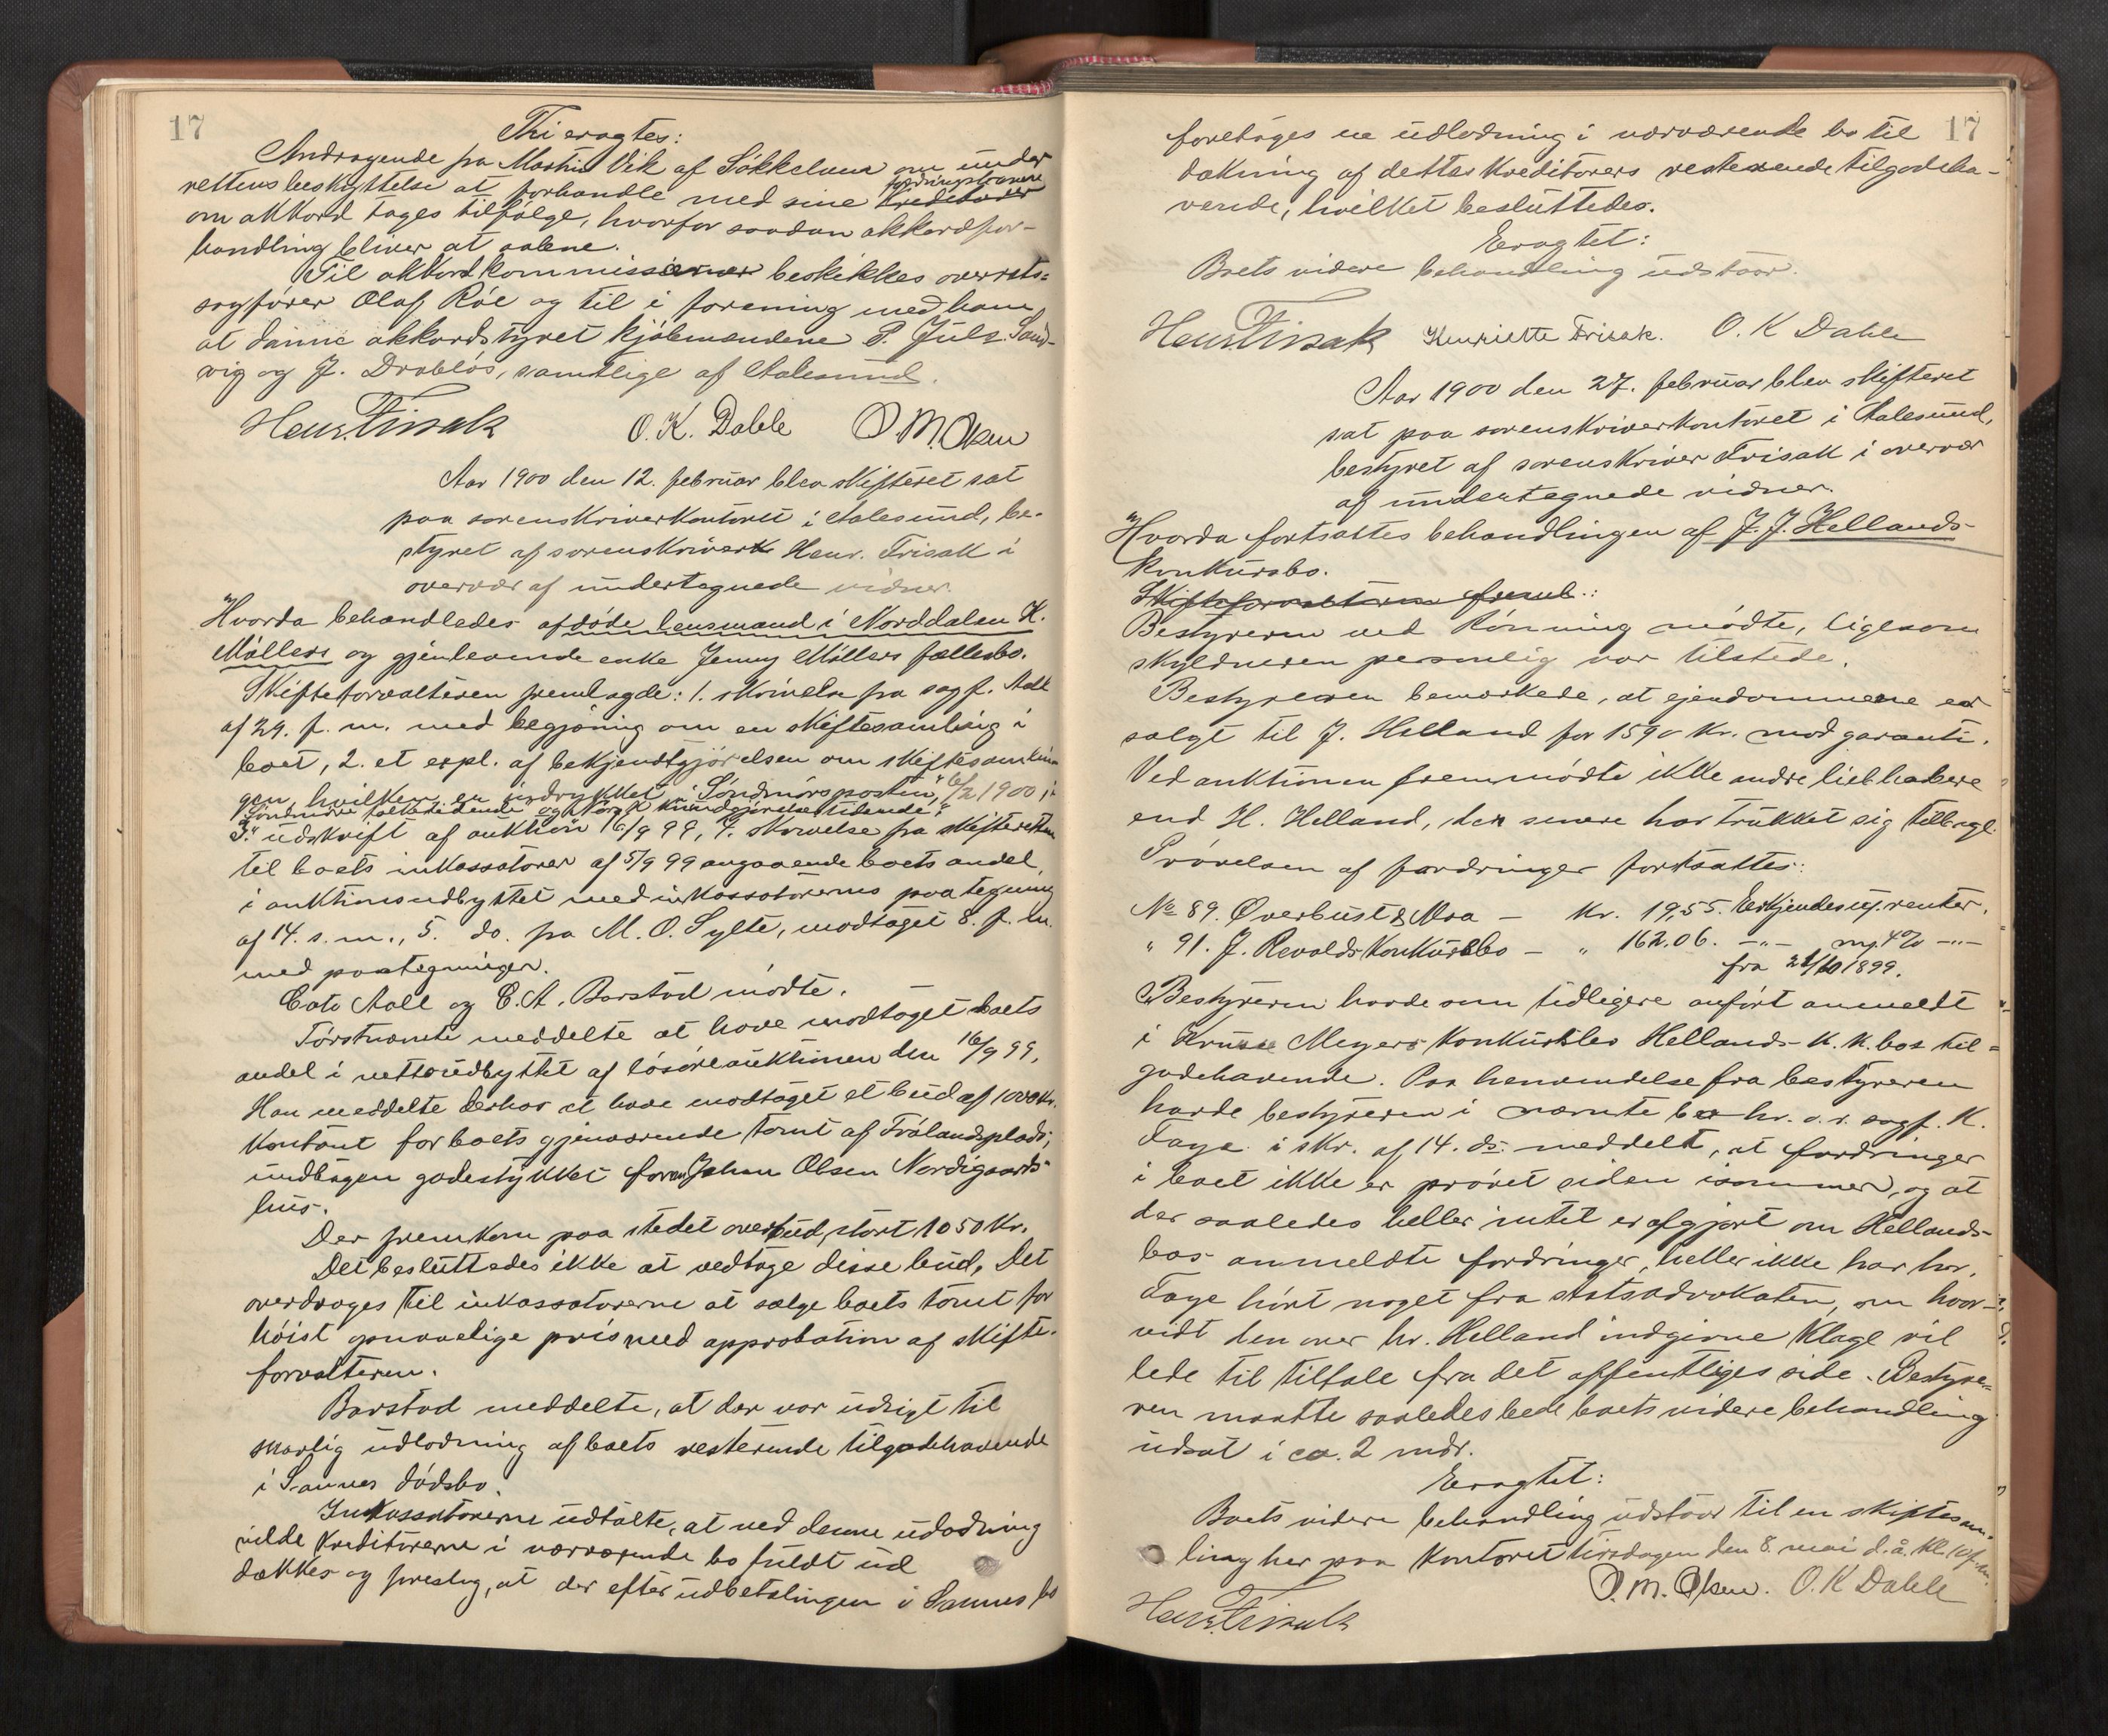 17
Thi eragtes:
Andragende fra Martin Vik af Søkkelven om under
rettens beskyttelse at forhandle med sine fordringshavere kreditorer
om akkord tages tilfølge, hvorfor saadan akkordfor-
handling bliver at aabne.
Til akkordkommissær beskikkes overrets-
sagfører Olaf Róe og til i forening med ham
at danne akkordstyret kjøbmændene P. Juls. Sand-
vig og J. Drabløs, samtlige af Aalesund.
Henr. Frisak O. K. Dahle O. M. Olsen
Aar 1900 den 12. februar blev skifteret sat
paa sorenskriverkontoret i Aalesund, be-
styret af sorenskriver Henr. Frisak i
overvær af undertegnede vidner.
Hvorda behandledes afdøde lensmand i Norddalen K.
Møllers og gjenlevende enke Jenny Møllers fællesbo.
Skifteforvalteren fremlagde: 1. skrivelse fra sagf. Aall
af 29. f. m. med begjæring om en skiftesamling i
boet, 2. et expl. af bekjendtgjørelsen om skiftesamlin
gen, hvilken er indrykket i "Søndmørsposten," 6/2 1900 i
"Søndmøre folketidende" og Norsk kundgjørelsestidende".
3. udskrift af auktion 16/9 99, 4. skrivelse fra skifteretten
til boets inkassatorer af 5/9 99 angaaende boets andel
i auktionsudbyttet med inkassatorernes paategning
af 14. s. m., 5. do. fra M. O. Sylte, modtaget 8. f. m.
med paategninger.
Cato Aall og C. A. Barstad mødte.
Førstnævnte meddelte at have modtaget boets
andel i nettoudbyttet af løsøreauktionen den 16/9 99.
Han meddelte derhos at have modtaget et bud af 1000 kr.
kontant for boets gjenværende tomt af Frølandsplads,
undtagen gadestykket foran Johan Olsen Nordigaards
hus.
Der fremkom paa stedet overbud, stort 1050 Kr.
Det besluttedes ikke at vedtage disse bud. Det
overdroges til inkassatorerne at sælge boets tomt for
høist opnaaelige pris med approbation af skifte-
forvalteren.
Barstad meddelte, at der var udsigt til
snarlig udlodning af boets resterende tilgodehavende
i Sannes dødsbo.
Inkassatorerne udtalte, at ved denne udlodning
vilde kreditorerne i nærværende bo fuldt ud
dækkes og foreslog, at der efter udbetalingen i Sannes bo
17
foretages en udlodning i nærværende bo til
dækning af dettes kreditorers resterende tilgodeha-
vende, hvilket besluttedes.
Eragtet:
Boets videre behandling udstaar.
Henr. Frisak Henriette Frisak. O. K Dahle
Aar 1900 den 27. februar blev skifteret
sat paa sorenskriverkontoret i Aalesund,
bestyret af sorenskriver Frisak i overvær
af undertegnede vidner.
Hvorda fortsattes behandlingen af J. J. Hellands
konkursbo.
Skifteforvalteren freml.:
Bestyreren ved Rønning mødte, ligesom
skyldneren personlig var tilstede.
Bestyreren bemærkede, at ejendommene er
solgt til J. Helland for 1590 Kr. mod garanti.
Ved auktionen fremmødte ikke andre liebhabere
end H. Helland, der senere har trukket sig tilbage.
Prøvelsen af fordringer fortsattes:
No 89. Øverbust & Moa – Kr. 19,55. Erkjendes u/. renter.
" 91. J. Revolds Konkursbo – " 162.06. –"– m/. 4% –"–
fra 21/10 1899.
Bestyreren havde som tidligere anført anmeldt
i Kruse Meyers konkursbo Hellands k. k. bos til-
godehavende. Paa henvendelse fra bestyreren
havde bestyreren i nævnte bo hr. o. r. sagf. K.
Faye i skr. af 14. ds. meddelt, at fordringer
i boet ikke er prøvet siden isommer, og at
der saaledes heller intet er afgjort om Hellands
bos anmeldte fordringer, heller ikke har hr.
Faye hørt noget fra statsadvokaten, om hvor-
vidt den over hr. Helland indgivne klage vil
lede til tiltale fra det offentliges side. Bestyre-
ren maatte saaledes bede boets videre behandling
udsat i ca. 2 mdr.
Eragtet:
Boets videre behandling udstaar til en skiftesam-
ling her paa kontoret tirsdagen den 8. mai d. å. kl. 10 f. m.
O. M. Olsen. O. K Dahle
Henr. Frisak